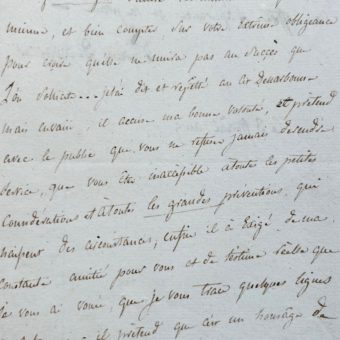 mienne, et bien compter sur votre extrême obligeance
pour croire qu'elle ne nuira pas au succès que
l'on sollicite... j'ai dit et répété au Cr
mais envain, il accuse ma bonne volonté, et prétend
avec le public que vous ne refusez jamais de rendre
service, que vous êtes inaccessible à toutes les petites
considérations et à toutes les grandes préventions, qui
naissent des circonstances, enfin il a exigé de ma
constante amitié pour vous et de l'estime réelle que
je vous ai vouée, que je vous trace quelques lignes
il prétend que c'est un hommage de